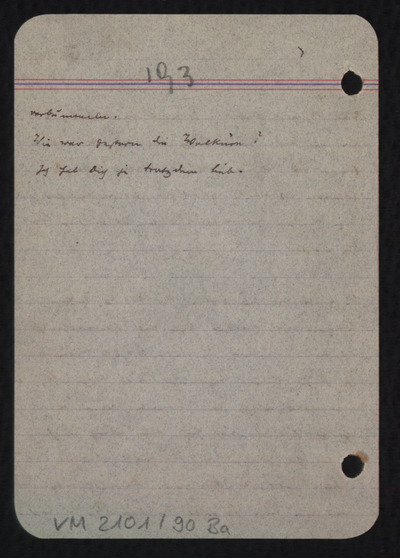 193
verbummeln.
Wie war gestern die Walküre?
Ich hab Dich ja trotzdem lieb.
VM 2101/90 Ba